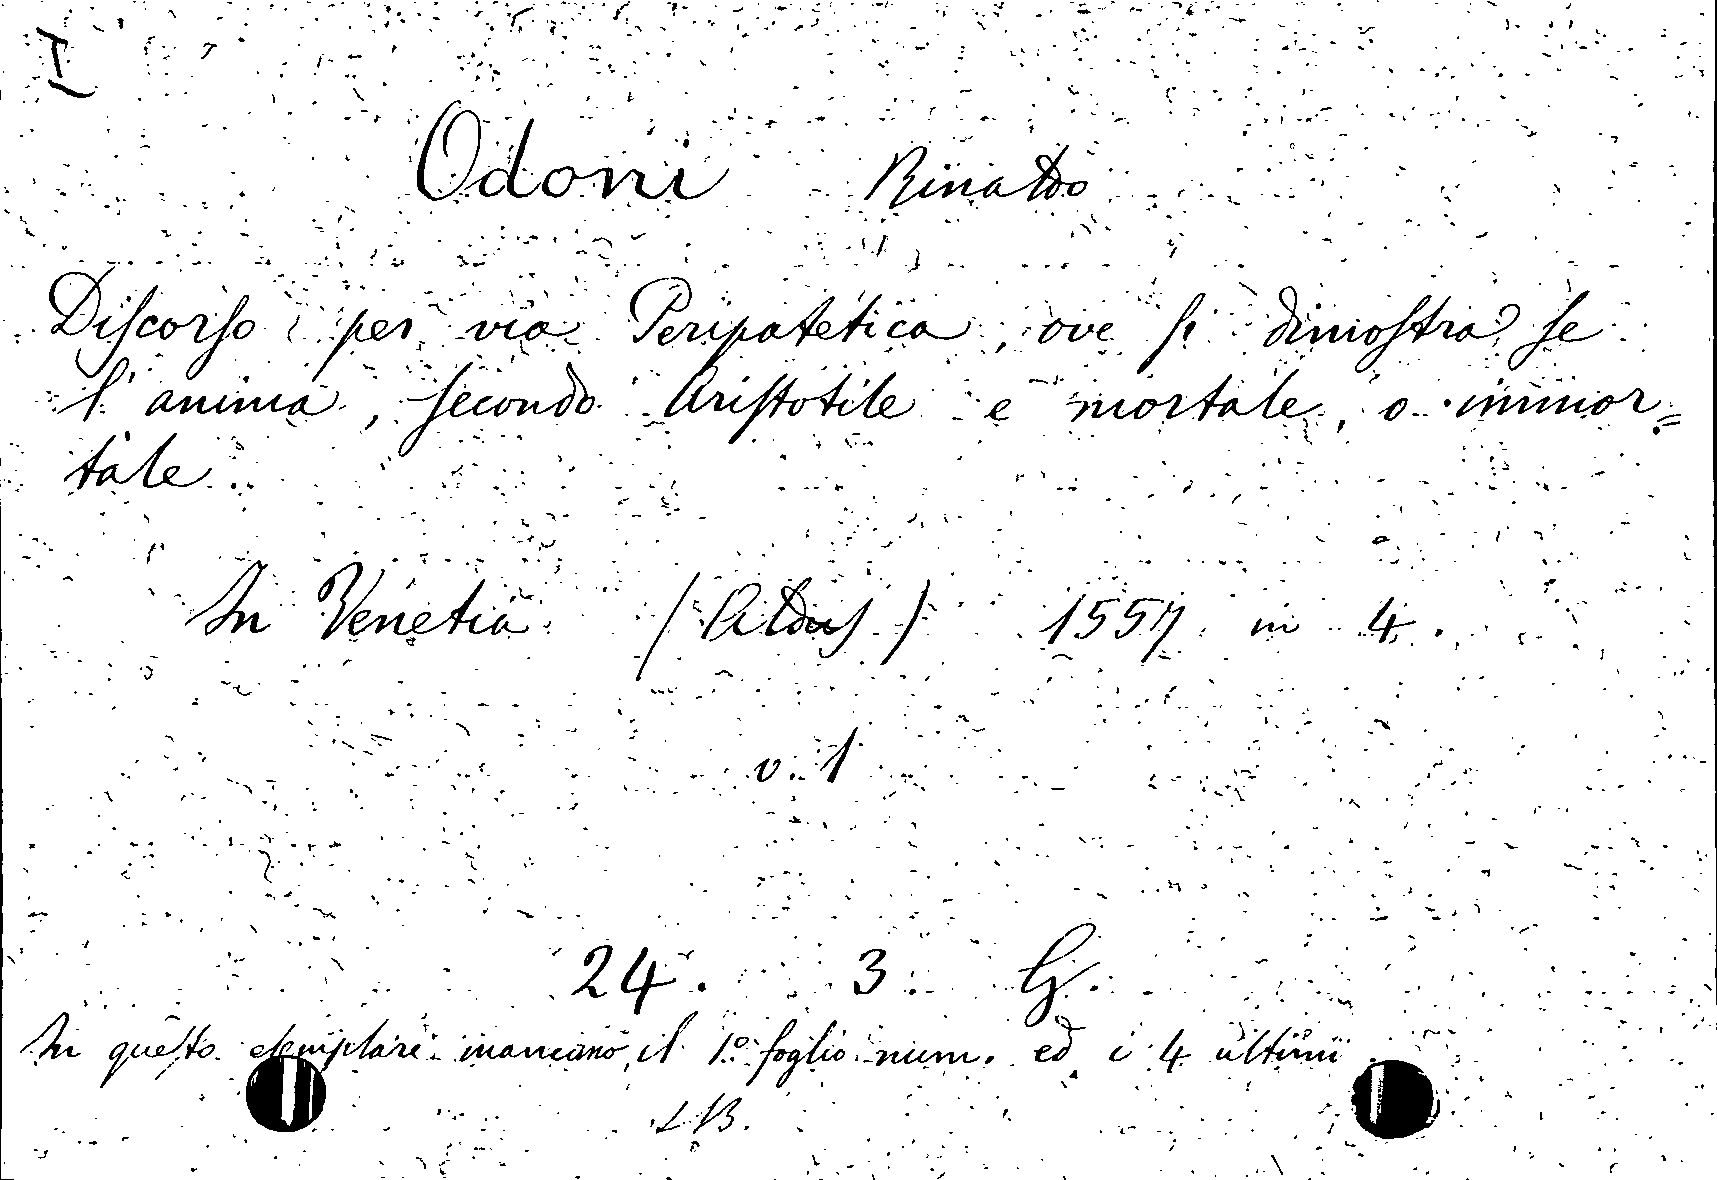 I
Odoni Rinaldo
Discorso per via Peripatetica, ove si dimostra, se
l'anima, secondo Aristotile e mortale, o immor=
tale.
In Venetia (Aldus) 1557 in 4.
v. 1
24. 3. G.
In questo esemplare mancano il 1.º foglio num. ed i 4 ultimi
LB.